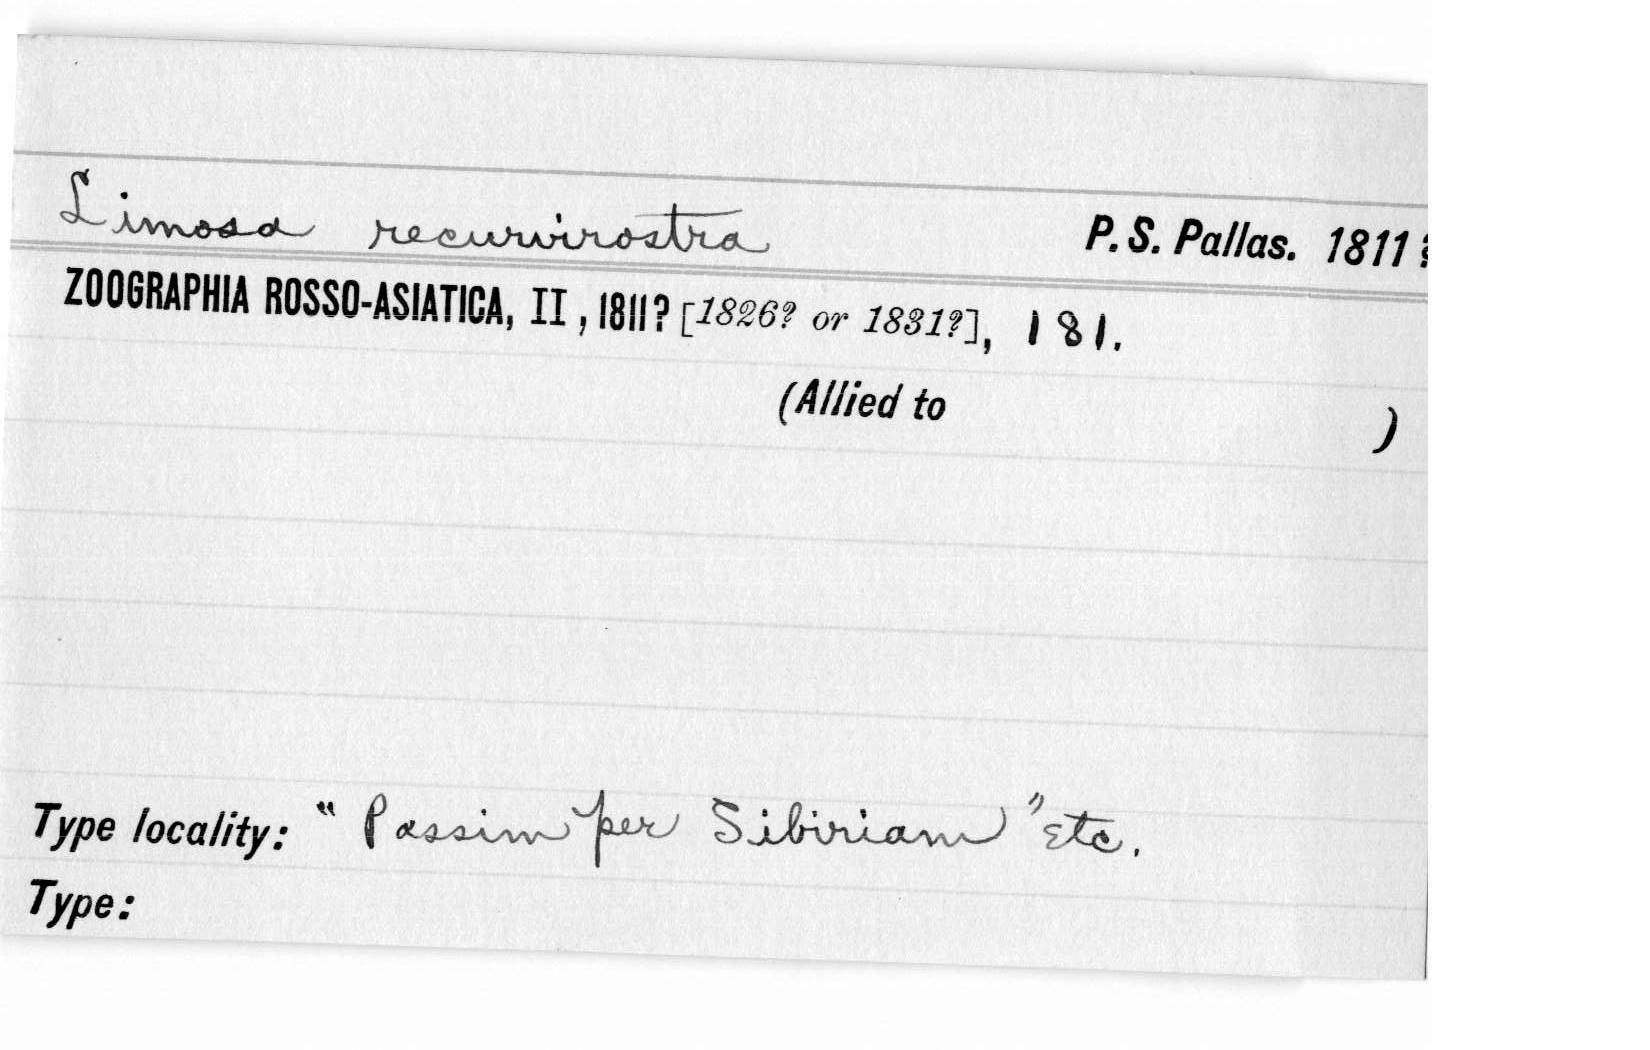 Limosa recurvirostra P. S. Pallas. 1811?
ZOOGRAPHIA ROSSO-ASIATICA, II, 1811? [1826? or 1831?], 181.
(Allied to )
Type locality: "Passim per Sibiriam" etc.
Type: